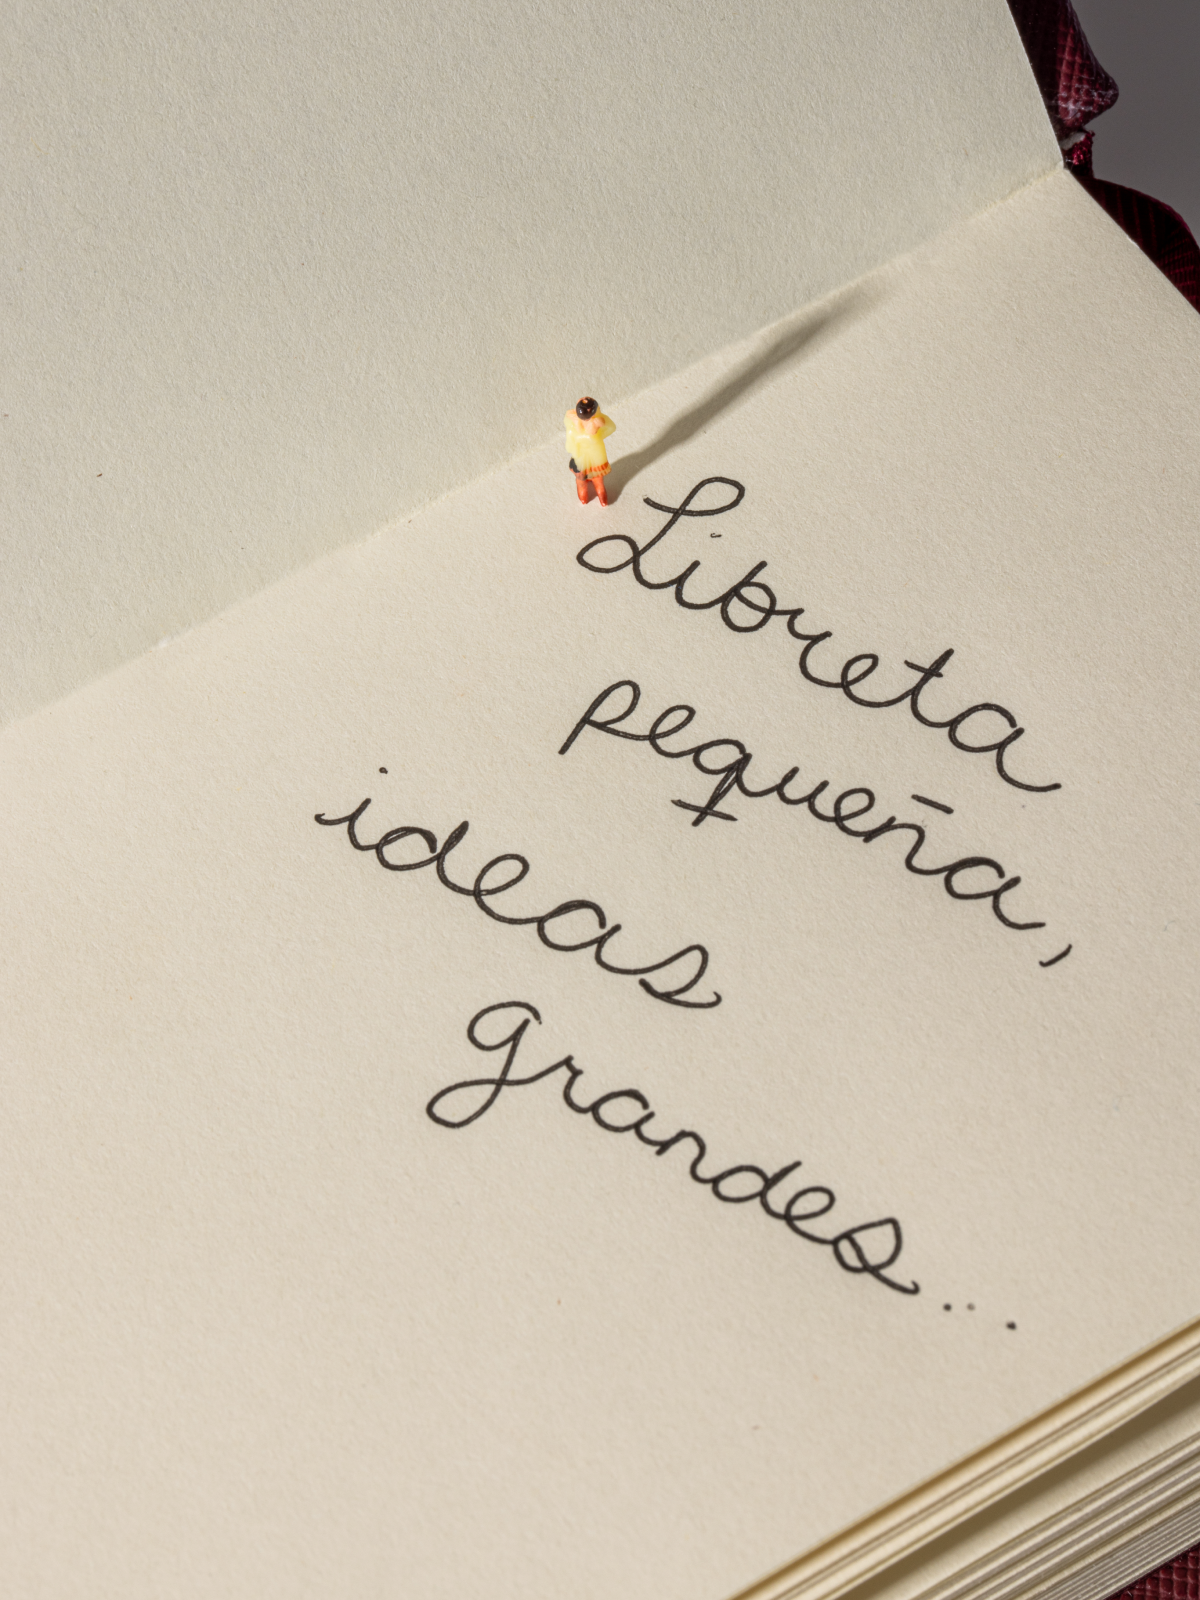 Libreta
pequeña,
ideas
grandes...